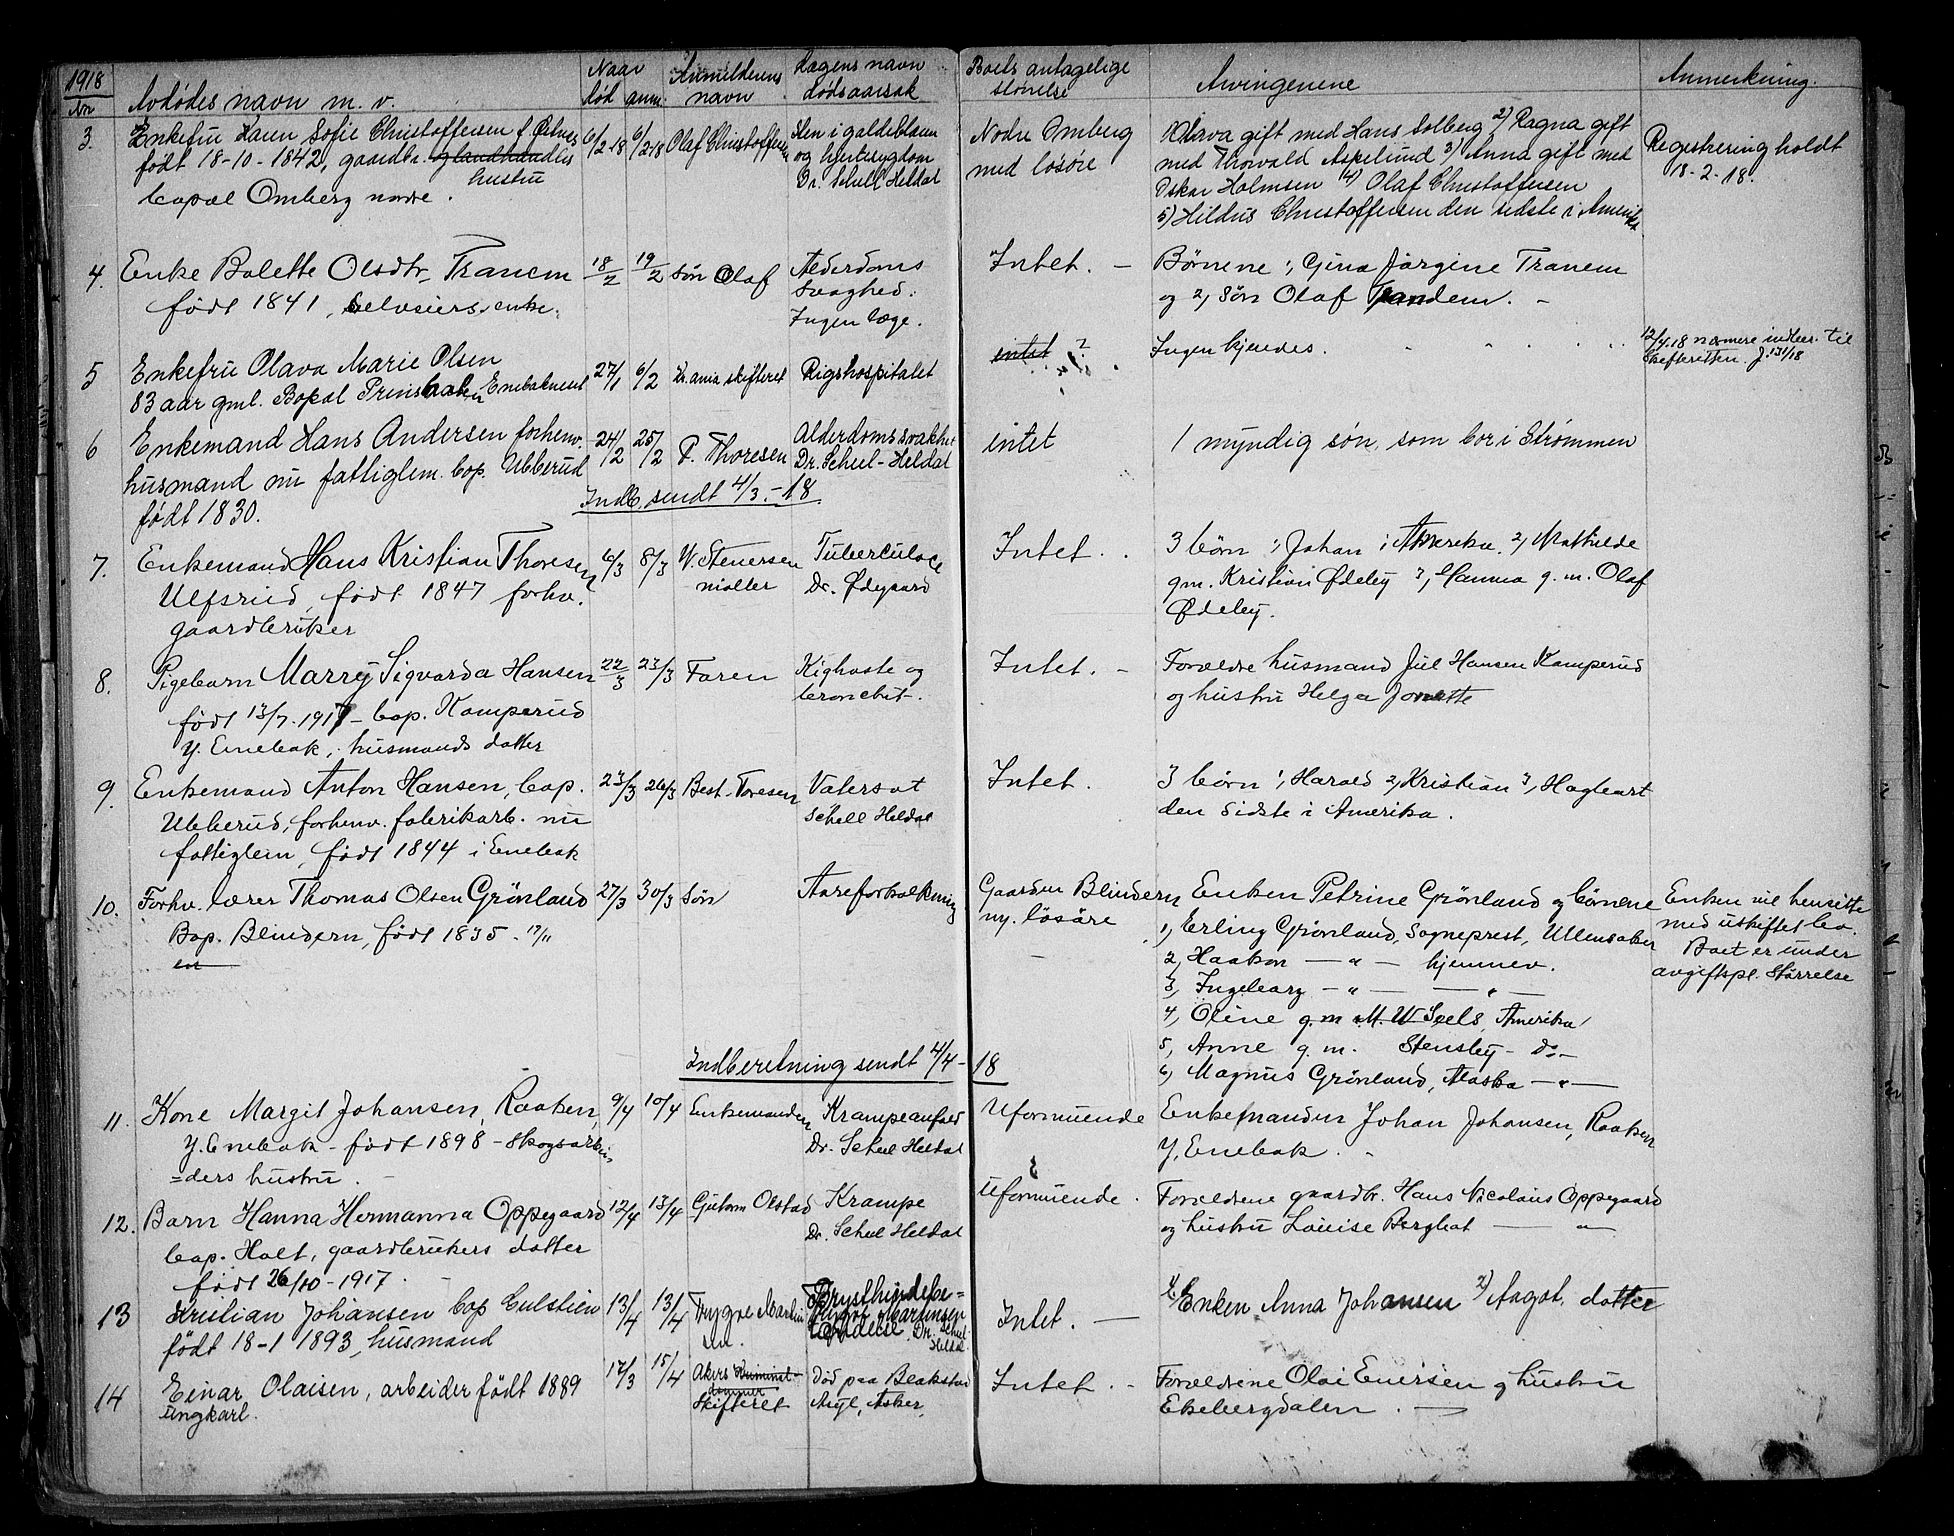 1918
No
Avdödes navn m. v.
Naar
död anm.
Anmelderens
navn
Lægens navn
dödsaarsak
Boets antagelige
störrelse
Arvingerne
Anmerkning.
3.
Enkefru Karen Sofie Christoffersen f. Østnes
født 18-10-1842, gaardbr. og landhandlers
hustru
bopæl Omberg nordre.
6/2-18
6/2-18
Olaf Christoffersen
Sten i galdeblæren
og hjertesygdom
Dr. Scheel Heldal
Nodre Omberg
med løsøre
1) Olava gift med Hans Solberg 2) Ragna gift
med Thorvald Askelund 3) Anna gift med
Oskar Holmsen 4) Olaf Christoffersen
5) Hildus Christoffersen den sidste i Amerika
Registrering holdt
18-2-18.
4.
Enke Bolette Olsdtr. Tranem
født 1841, selveiers enke.
18/2
19/2
Sön Olaf
Alderdoms
svaghed.
Ingen læge.
Intet. –
Børnene 1, Gina Jörgine Tranem
og 2, Sön Olaf Trandem. –
5
Enkefru Olava Marie Olsen
83 aar gml. Bopæl Prinsbak, Enebakneset
27/1
6/2
Kr.ania skifteret
Rigshospitalet
intet ?
Ingen kjendes.
12/4.18 nærmere indber. til
skifteretten. J. 131/18
6
Enkemand Hans Andersen forhenv.
husmand nu fattiglem. bop. Ubberud
født 1830.
24/2
25/2
P. Thoresen
Alderdomssvakhet
Dr. Scheel-Heldal
Indb. sendt 4/3.-18.
intet
1 myndig søn, som bor i Strømmen
7.
Enkemand Hans Kristian Thoresen
Ulfsrud, født 1847 forhv.
gaardbruker
6/3
8/3
W. Stenersen
møller
Tuberculose
Dr. Ødegaard
Intet.
3 børn 1, Johan i Amerika. 2, Mathilde
gm. Kristian Ødeby 3, Hanna g. m. Olaf
Ødeby.
8.
Pigebarn Marry Sigvarda Hansen
født 13/7-1917 – bop. Kamperud
Y. Enebak, husmands datter
22/3
23/3
Faren
Kighoste og
bronchit.
Intet. –
Forældre husmand Jul Hansen Kamperud
og hustru Helga Jonette
9.
Enkemand Anton Hansen, bop.
Ubberud, forhenv. fabrikarb. nu
fattiglem, født 1844 i Enebak
23/3
26/3
Best. Toresen
Vatersot
Scheel Heldal
Intet.
3 börn 1, Harald 2, Kristian 3, Hagbart
den sidste i Amerika.
10.
Forhv. lærer Thomas Olsen Grönland
Bop. Blindern, født 1835 - 17/11
en
27/3
30/3
Sön
Aareforkalkning
Gaarden Blindern
og lösöre
Enken Petrine Grönland og börnene
1, Erling Grönland, Sogneprest, Ullensaker
2, Haakon – " – hjemmev.
3, Ingeborg – " – – " –
4, Oline g.m. M. W. Seels, Amerika
5, Anne g. m. Stensby – do –
6, Magnus Grönland, Alaska – " –
Enken vil hensitte
med uskiftet bo.
Boet er under
avgiftspl. Störrelse
Indberetning sendt 4/4-18
11.
Kone Margit Johansen, Raaken,
Y. Enebak – født 1898 – skogsarbei=
=ders hustru.
9/4
10/4
Enkemanden
Krampeanfald
Dr. Scheel Heldal
Uformuende
Enkemanden Johan Johansen, Raaken
Y. Enebak.
12.
Barn Hanna Hermanna Oppegaard
bop. Holt, gaardbrukers datter
født 26/10-1917.
12/4
13/4
Gutorm Olstad
Krampe
Dr. Scheel Heldal
Uformuende.
Forældrene gaardbr. Hans Nicolaus Oppegaard
og hustru Louise Berghat – " –
13
Kristian Johansen bop
født 18-1 1893, husmand
13/4
13/4
Trygve Martin
sen.
Brysthindebe=
tændelse. Dr. Scheel
Heldal.
Intet. –
1) Enken Anna Johansen 2) Aagot, datter
14
Einar Olaisen, arbeider født 1889
Ungkarl.
17/3
15/4
Akers Kriminal-
dommer
Skifteret
Død paa Blakstad
Asyl, Asker,
Intet. –
Forældrene Olai Enersen og hustru
Ekebergdalen. –